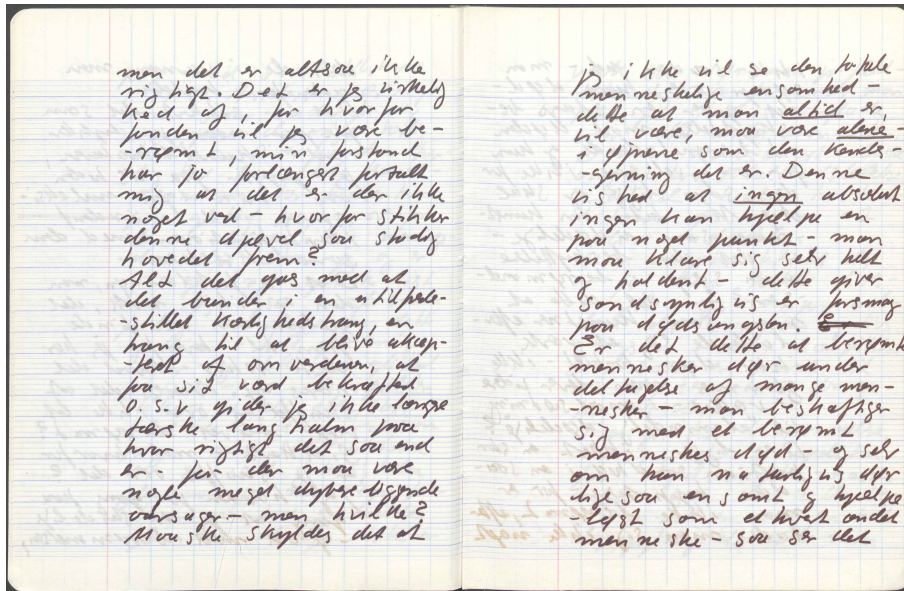 men det er altsaa ikke
rigtigt. Det er jeg virkelig
ked af, for hvorfor
fanden vil jeg være be-
-rømt, min forstand
har jo forlængst fortalt
mig at det er der ikke
noget ved - hvorfor stikker
denne djævel saa stadig
hovedet frem?
Alt det gas med at
det bunder i en utilfreds-
-stillet kærlighedstrang, en
trang til at blive accep-
-teret af omverdenen, at
faa sit værd bekræftet
o.s.v gider jeg ikke længe
tærske lang halm paa
hvor rigtigt det saa end
er - for der maa være
nogle meget dybere liggende
aarsager - men hvilke?
Maaske skyldes det at
jeg ikke vil se den totale
menneskelige ensomhed -
dette at man altid er,
vil være, maa være alene -
i øjnene som den kends-
-gerning det er. Denne
vished at ingen absolut
ingen kan hjælpe en
paa noget punkt - man
maa klare sig selv helt
og holdent - dette giver
sandsynligvis en forsmag
paa dødsangsten.
Er det dette at berømte
mennesker dør under
deltagelse af mange men-
-nesker - man beskæftiger
sig med et berømt
menneskes død - og selv
om han naturligvis dør
lige saa ensomt og hjælpe-
-løst som ethvert andet
menneske - saa ser det